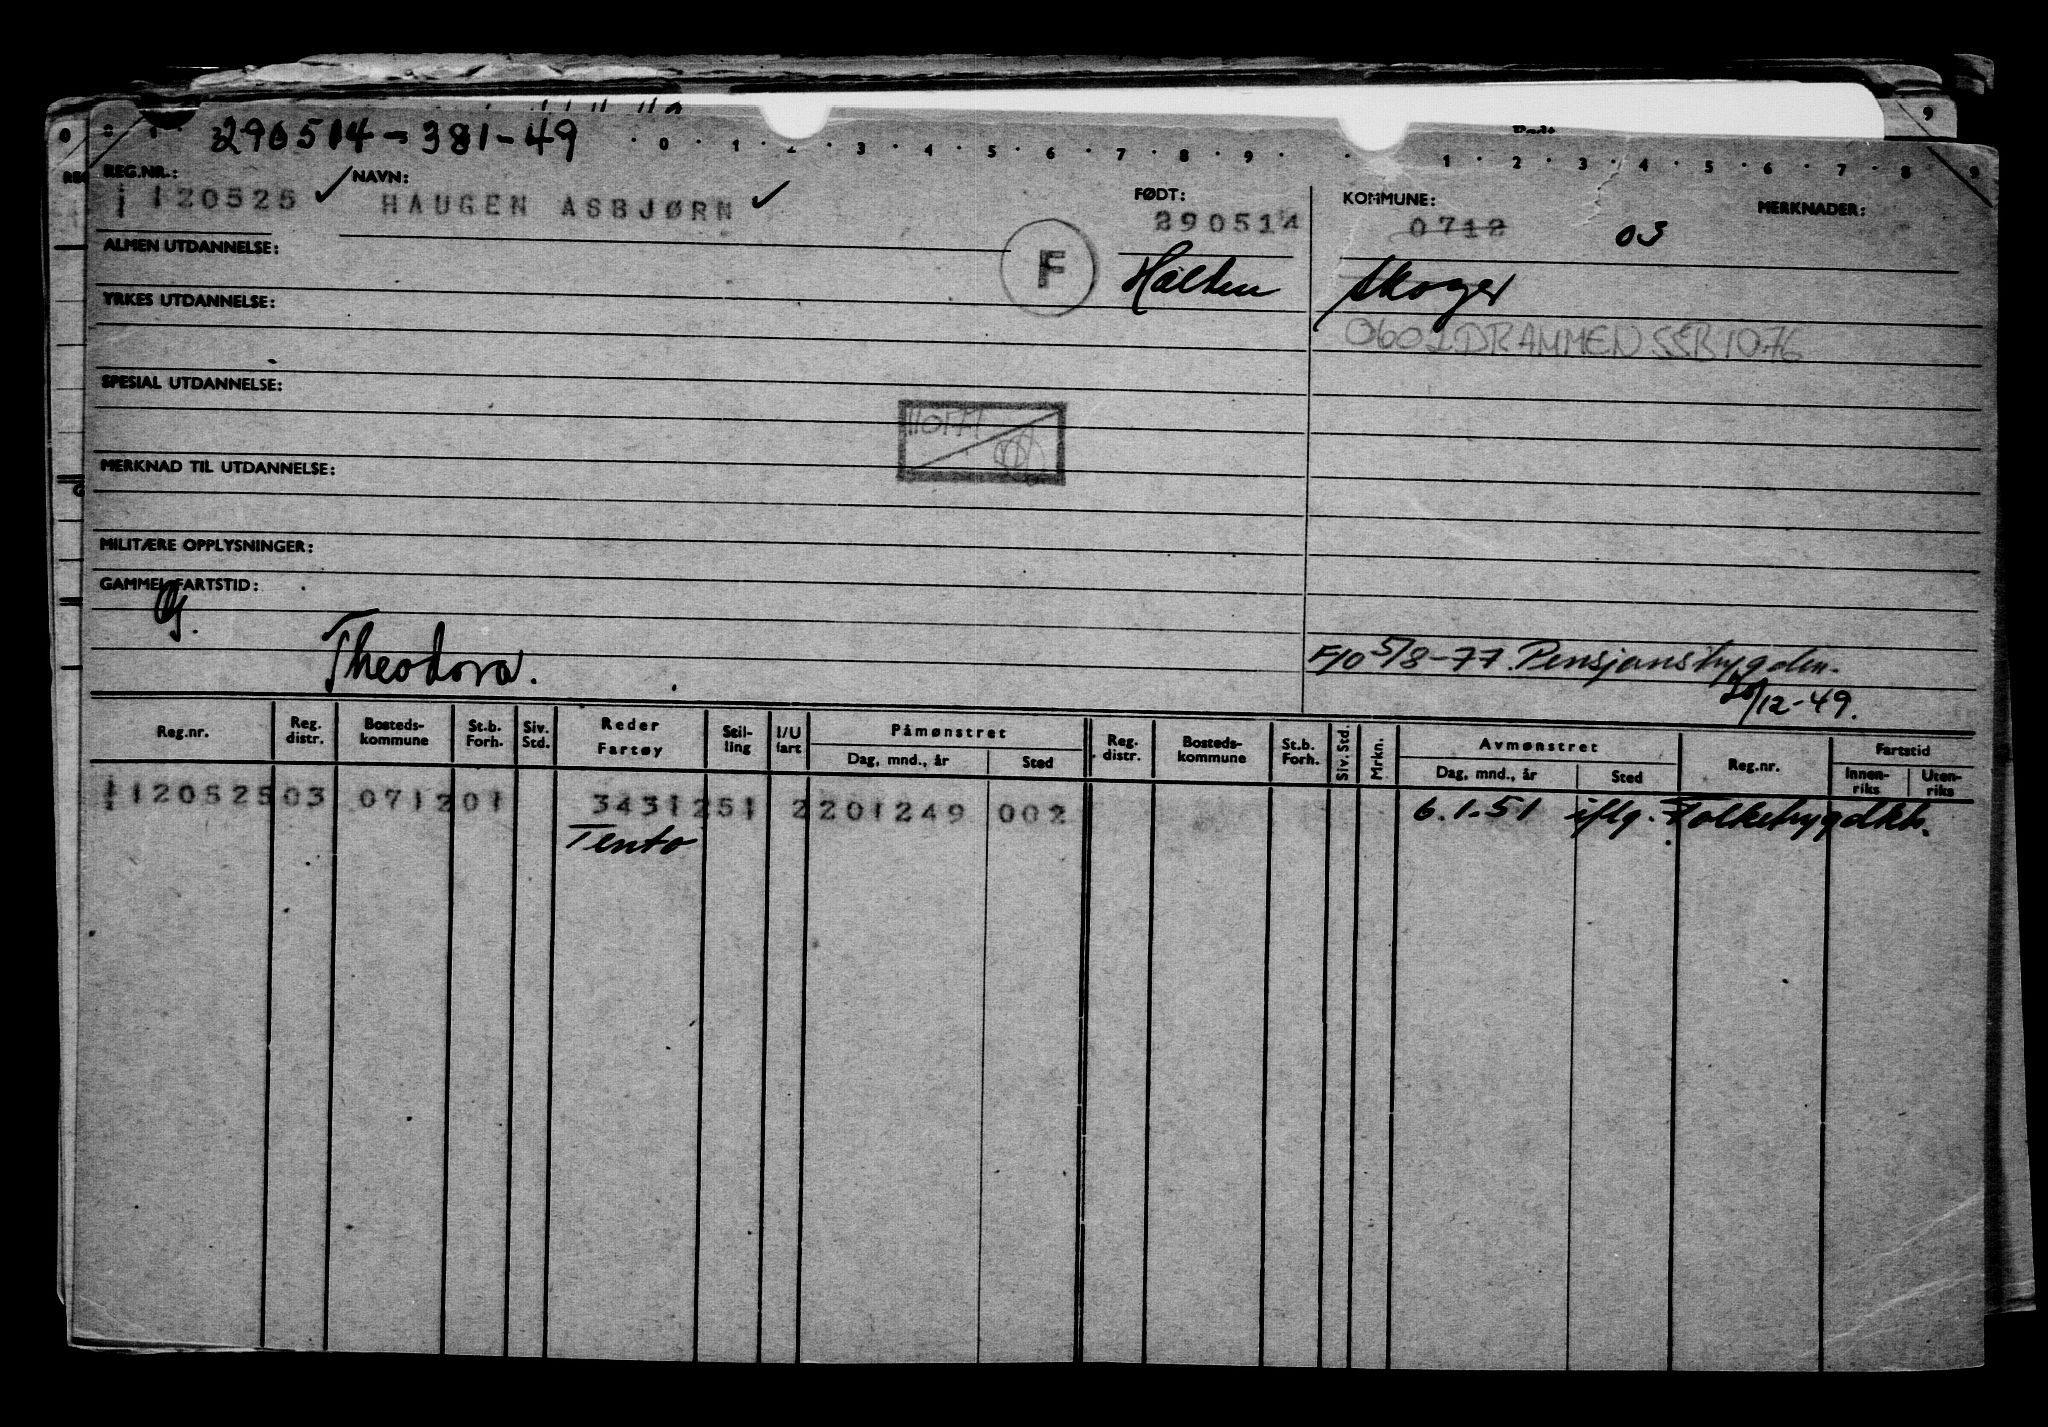 290514-381-49
0 1 2 3 4 5 6 7 8 9 1 2 3 4 5 6 7 8 9
REG.NR.: NAVN: FØDT: KOMMUNE: MERKNADER:
120525 HAUGEN ASBJØRN 290514 0712 03
ALMEN UTDANNELSE: F Halden Skoger
YRKES UTDANNELSE:
0602 DRAMMEN SER 10.76
SPESIAL UTDANNELSE:
MERKNAD TIL UTDANNELSE:
MILITÆRE OPPLYSNINGER:
GAMMEL FARTSTID:
Theodora.
F/O 5/8-77 Pensjonstrygden.
20/12-49.
Reg.nr. Reg. distr. Bosteds-kommune St.b. Forh. Siv. Std. Reder Fartøy Stil-ling I/U fart Påmønstret Dag, mnd., år Sted Reg. distr. Bosteds-kommune St.b. Forh. Siv. Std. Mrkn. Avmønstret Dag, mnd., år Sted Reg.nr. Fartstid Innen-riks Uten-riks
120525 03 0712 01 3431 251 2 201249 002 6.1.51 iflg. Folketrygdkt.
Tento